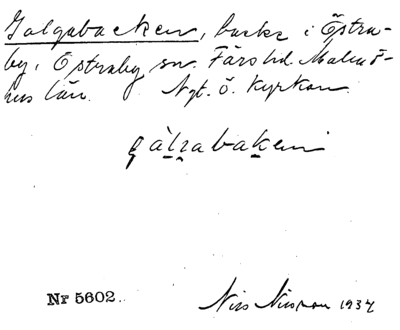 Galgabacken, backe i Östra-
by, Östraby sn. Färs hd. Malmö-
hus län. Nyt. ö. Kyrkan.
gálgabaken
Nr 5602.
Nils Nilsson 1934